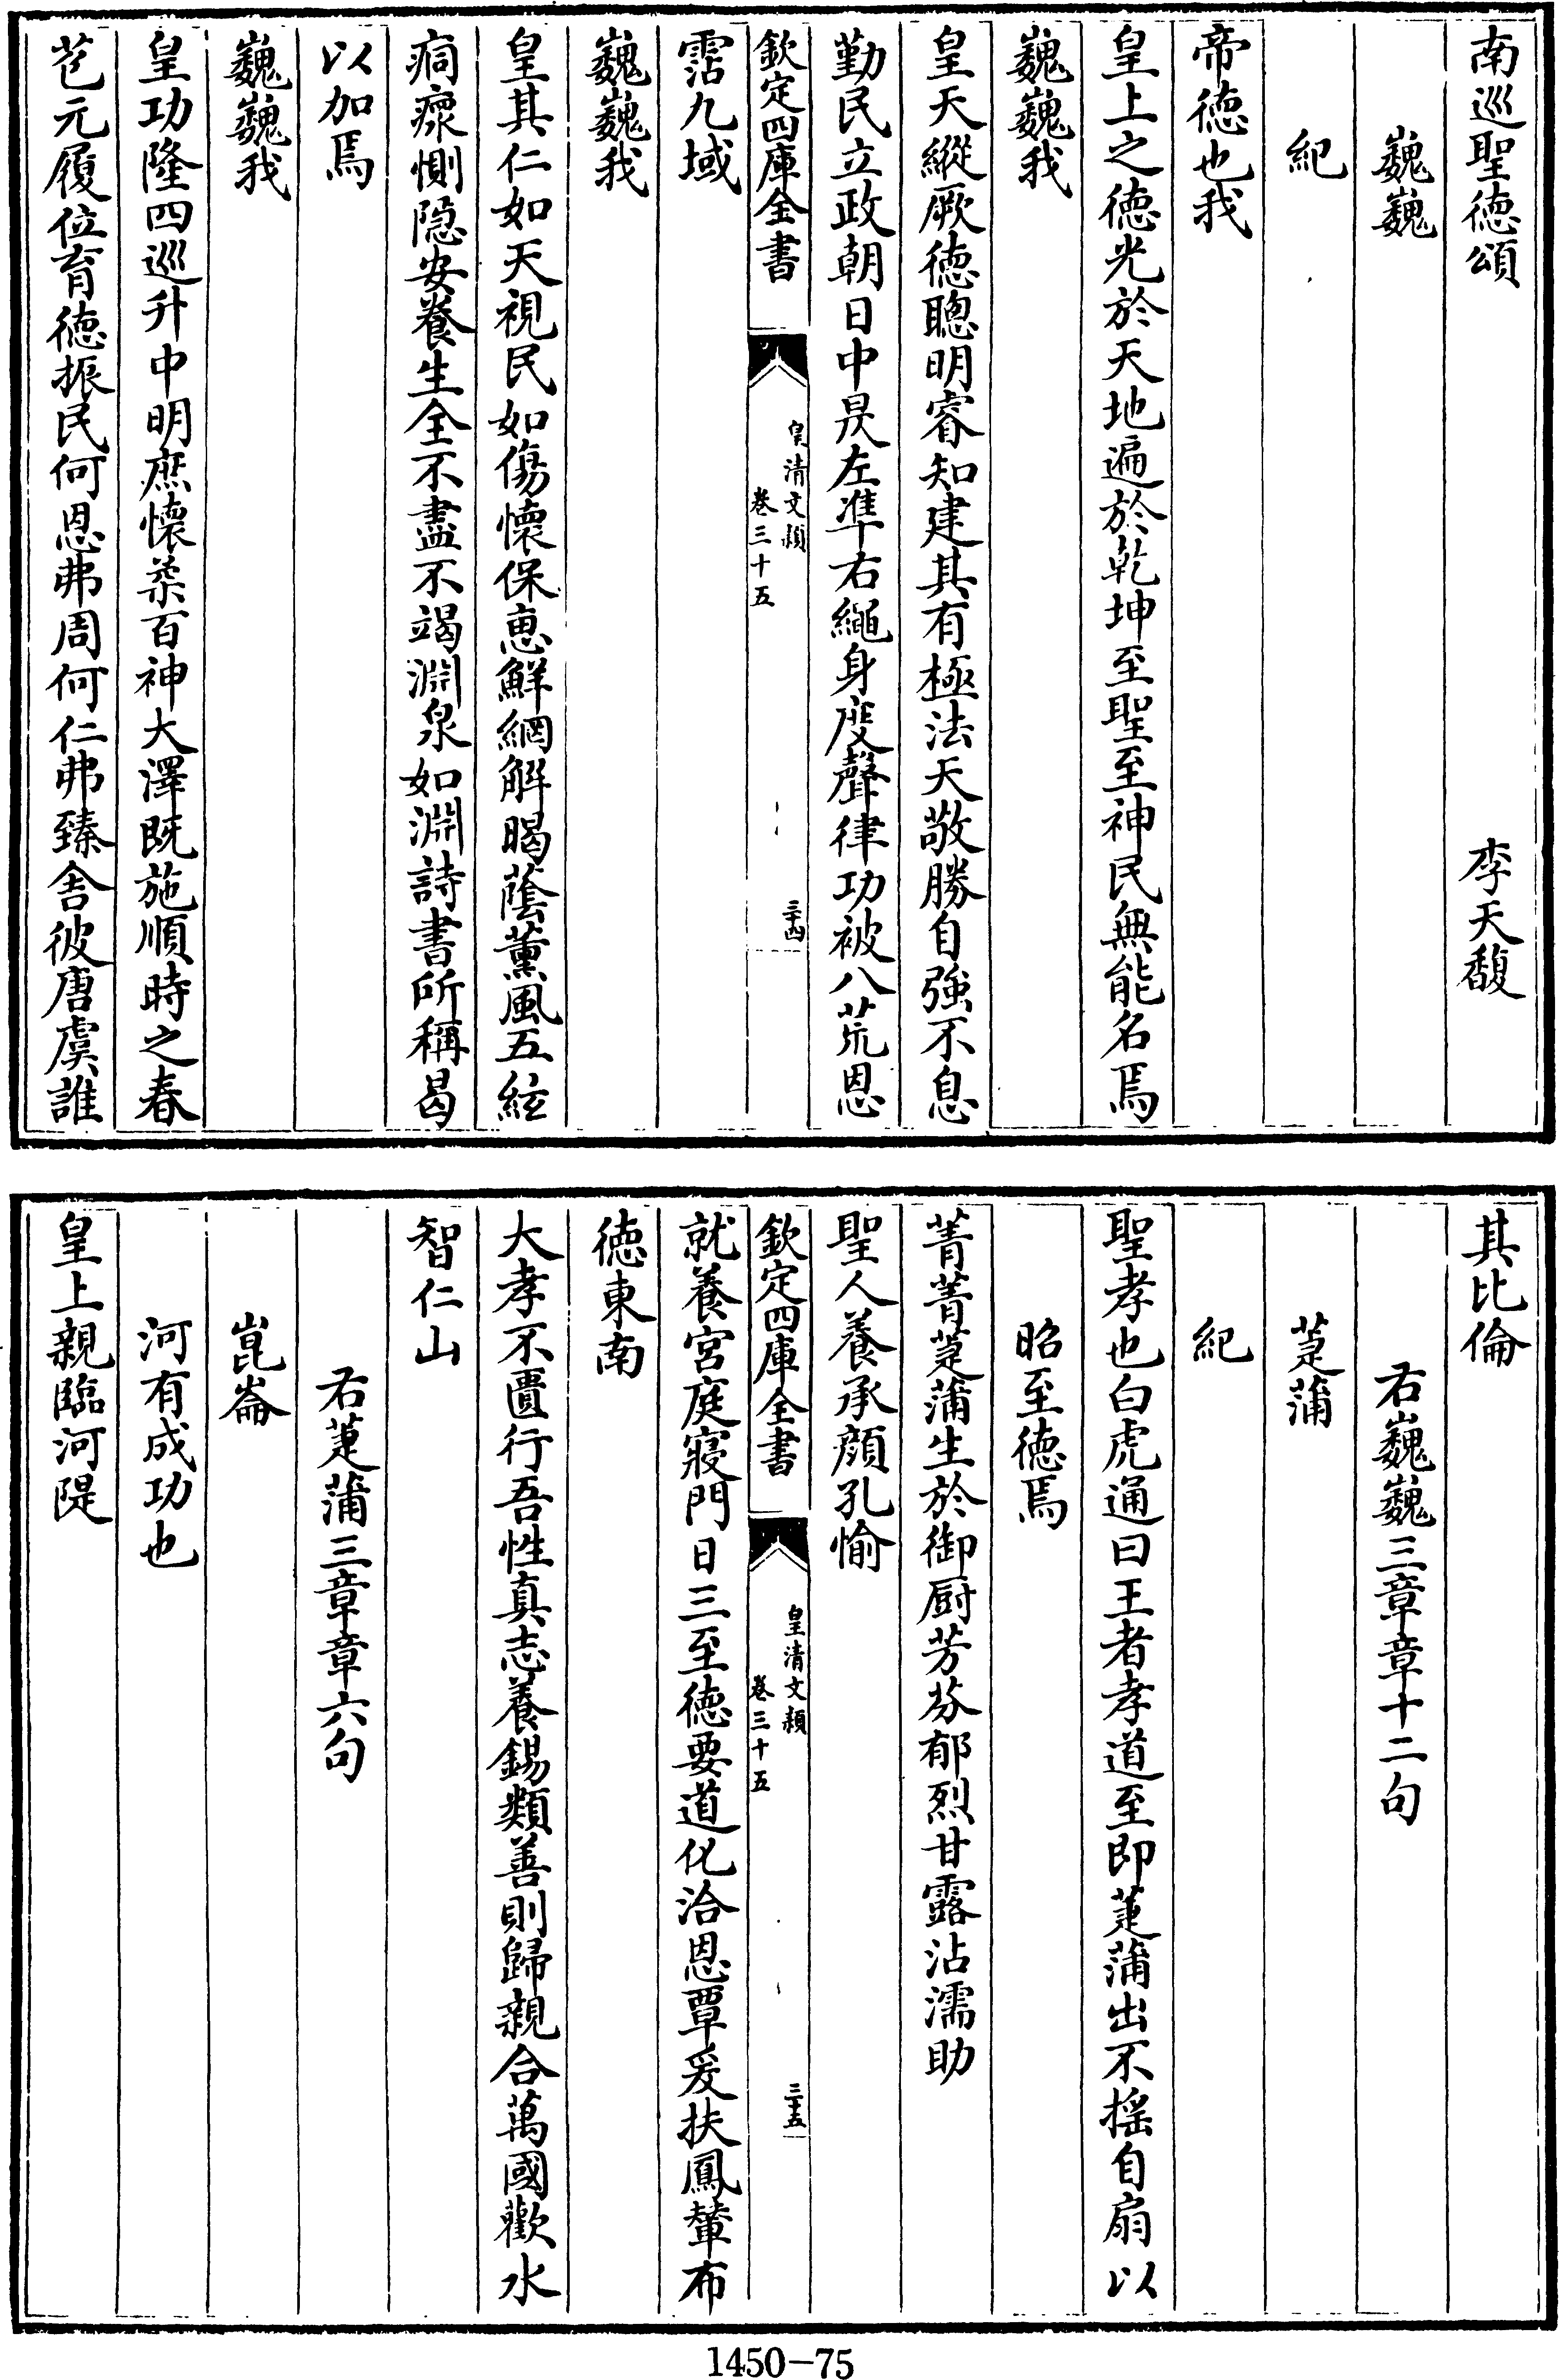 南巡聖徳頌　李天馥
巍巍
紀
帝徳也我
皇上之徳光於天地遍於乾坤至聖至神民無能名焉
巍巍我
皇天縱厥徳聰明睿知建其有極法天敬勝自強不息
勤民立政朝日中昃左準右繩身度聲律功被八荒恩
欽定四庫全書　皇清文穎　卷三十五　三十四
霑九域
巍巍我
皇其仁如天視民如傷懷保恵鮮網解暍蔭薰風五絃
痌瘝惻隐安養生全不盡不竭淵泉如淵詩書所稱曷
以加焉
巍巍我
皇功隆四巡升中明庶懷柔百神大澤既施順時之春
茝元履位育徳振民何恩弗周何仁弗臻舍彼唐虞誰
其比倫
右巍巍三章章十二句
萐蒲
紀
聖孝也白虎通曰王者孝道至即萐蒲出不揺自扇以
昭至徳焉
菁菁萐蒲生於御厨芳芬郁烈甘露沾濡助
聖人養承顔孔愉
欽定四庫全書　皇清文穎　卷三十五　三十五
就養宮庭寢門日三至徳要道化洽恩覃爰扶鳳輦布
徳東南
大孝不匱行吾性真志養錫類善則歸親合萬國歡水
智仁山
右萐蒲三章章六句
崑崙
河有成功也
皇上親臨河隄
1450-75